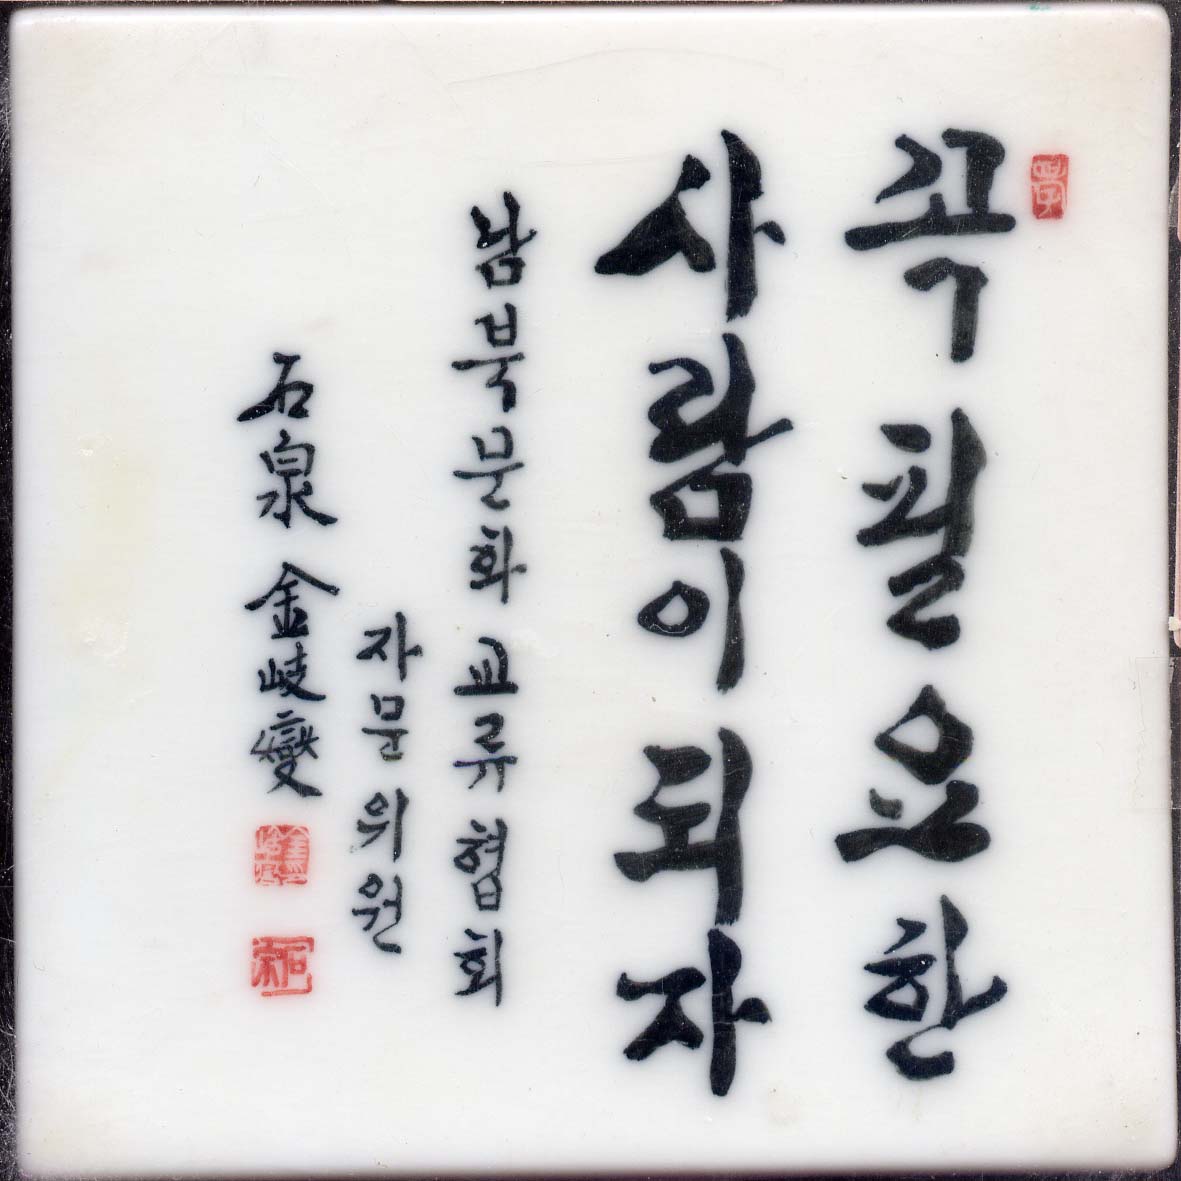 꼭 필요한
사람이 되자
남북문화교류협회
자문위원
石泉 金岐燮